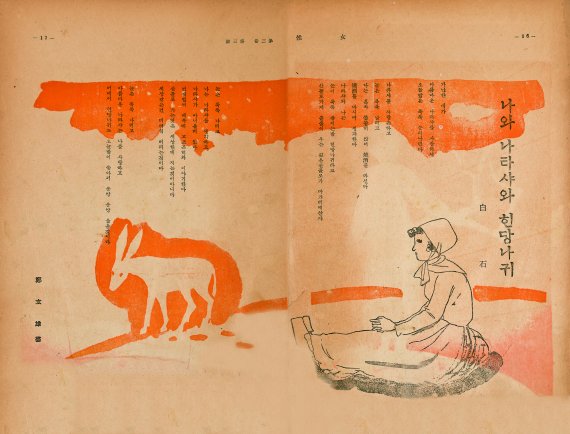 女性
나와 나타샤와 힌당나귀
白石
가난한 내가
아름다운 나타샤를 사랑해서
오늘밤은 푹푹 눈이나린다
나타샤를 사랑은하고
눈은 푹푹 날리고
나는 혼자 쓸쓸히 앉어 燒酒를 마신다
燒酒를 마시며 생각한다
나타샤와 나는
눈이 푹푹 쌓이는밤 힌당나귀타고
산골로가쟈 출출이 우는 깊은산골로가 마가리에살쟈
눈은 푹푹 나리고
나는 나타샤를 생각하고
나타샤가 아니올리 없다
언제벌서 내속에 고조곤히와 이야기한다
산골로 가는것은 세상한테 지는것이아니다
세상같은건 더러워 버리는것이다
눈은 푹푹 나리고
아름다운 나타샤는 나를 사랑하고
어데서 힌당나귀도 오늘밤이 좋아서 응앙 응앙 울을것이다
鄭玄雄畵